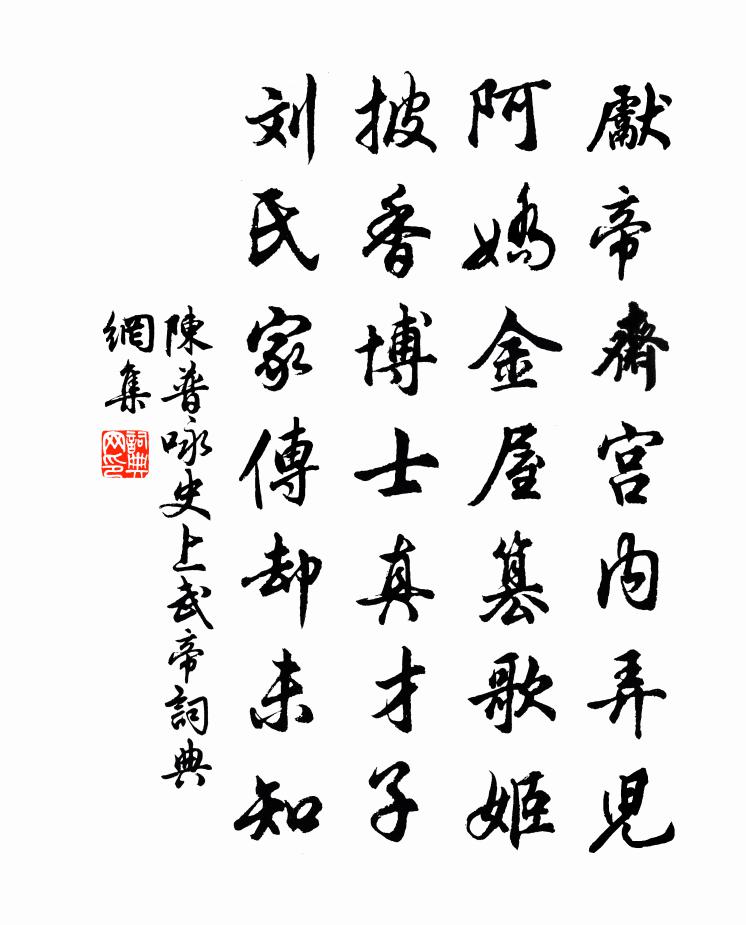 獻帝齋宮內弄兒
阿嬌金屋篡歌姬
披香博士真才子
刘氏家傳却未知
陳普咏史上武帝詞典
網集
詞典網印